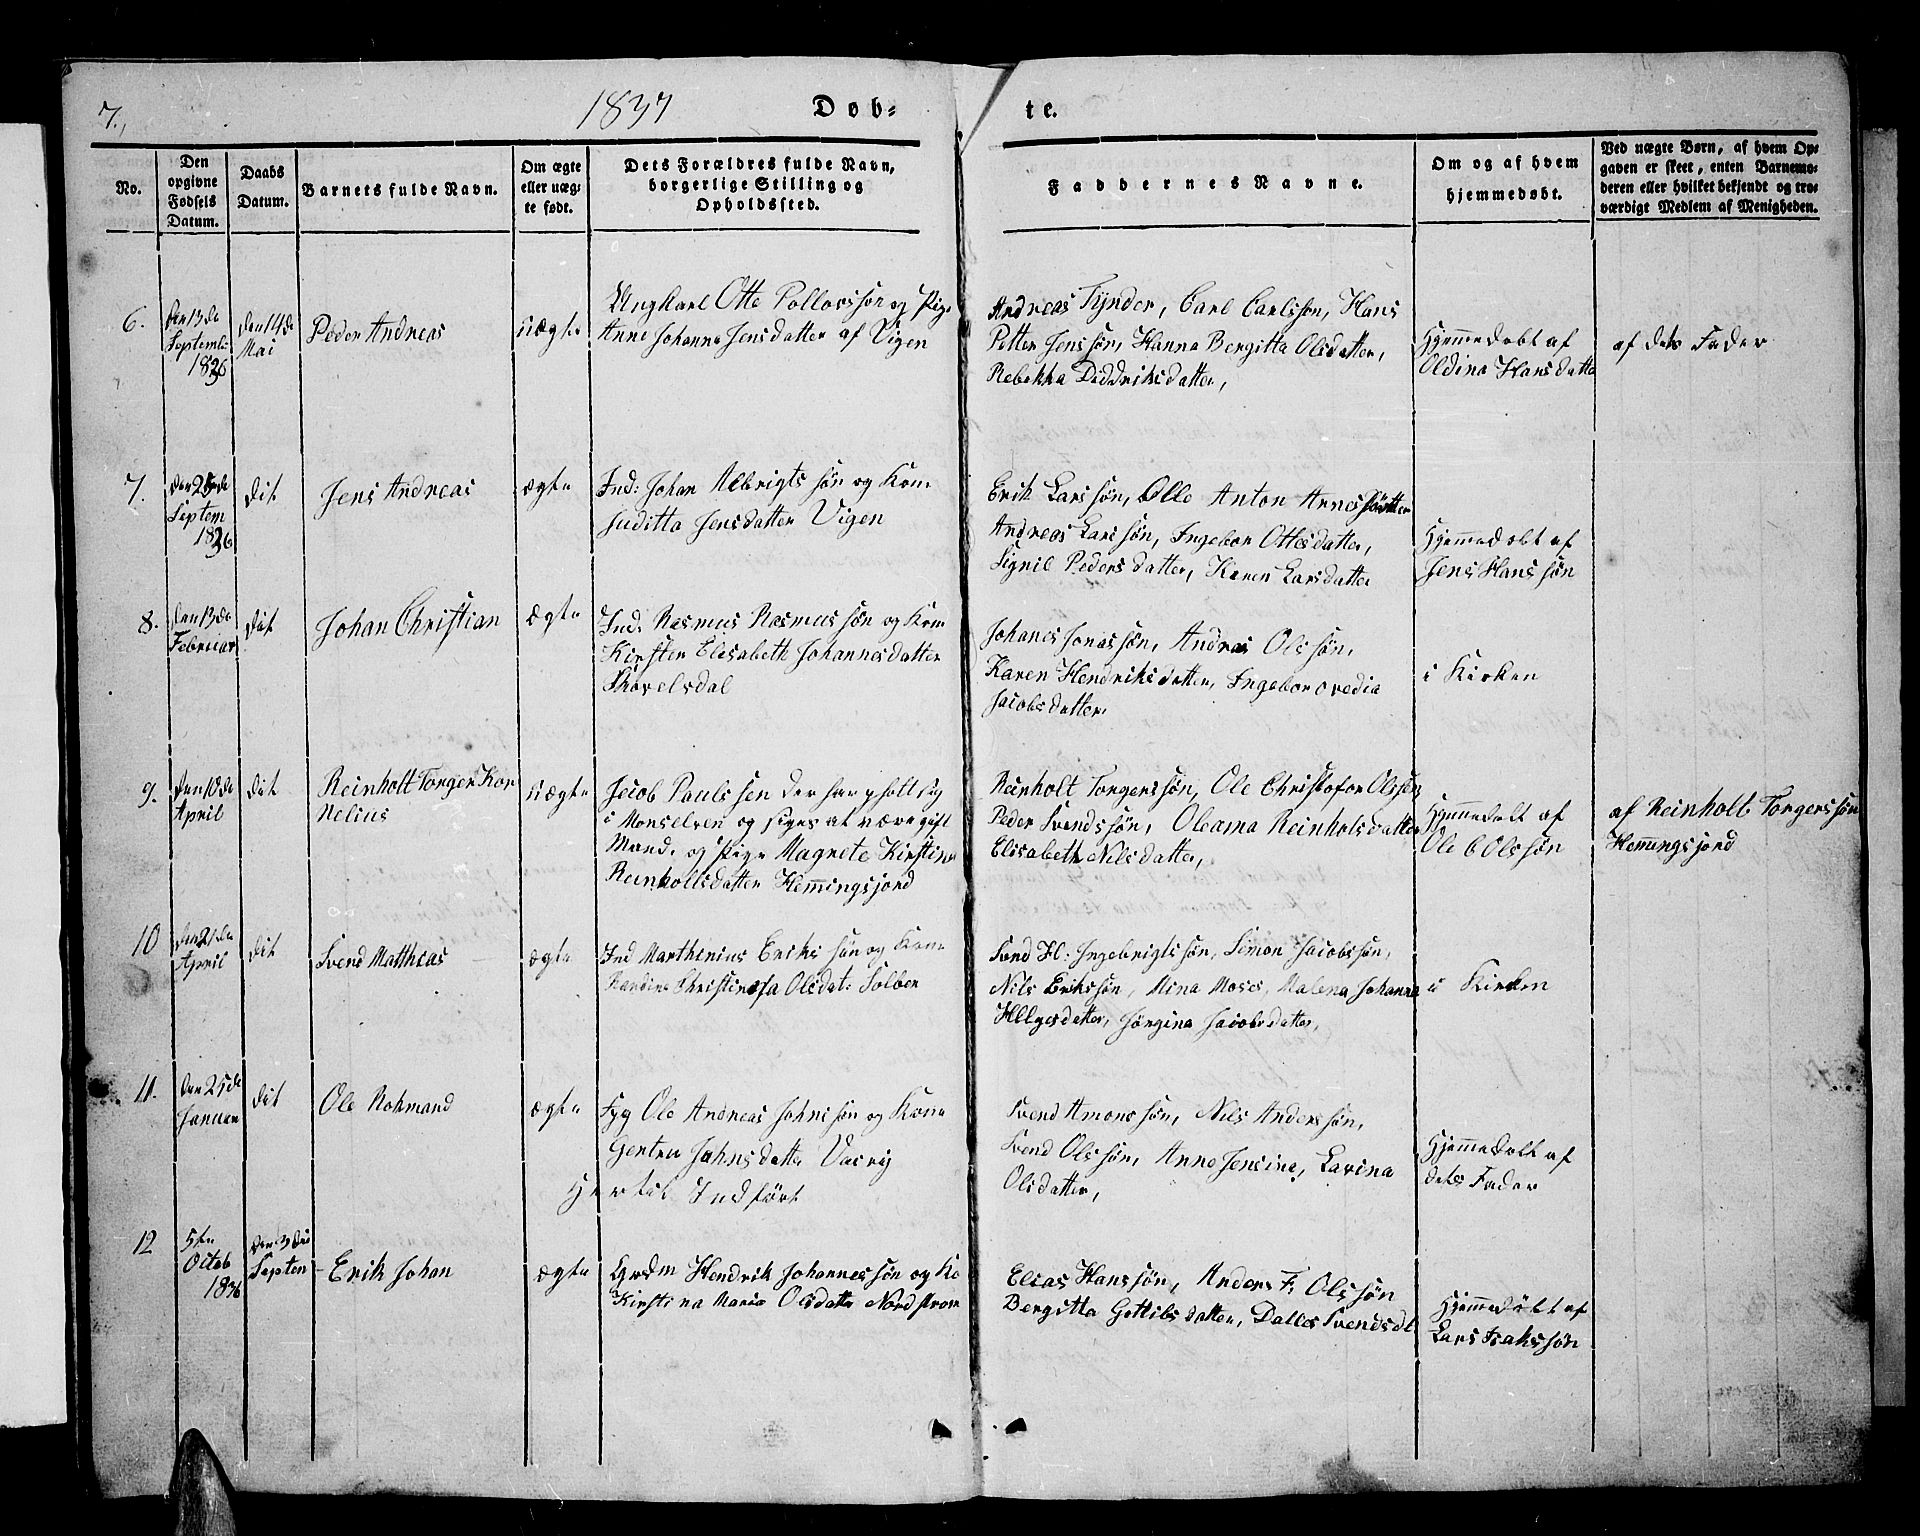 7.
1837
Døb-
te.
No.
Den
opgivne
Fødsels
Datum.
Daabs
Datum.
Barnets fulde Navn.
Om ægte
eller uæg-
te født.
Dets Forældres fulde Navn,
borgerlige Stilling og
Opholdssted.
Faddernes Navne.
Om og af hvem
hjemmedøbt.
Ved uægte Børn, af hvem Op-
gaven er skeet, enten Barnemo-
deren eller hvilket bekjendt og tro-
værdigt Medlem af Menigheden.
6.
den 13de
Septemb
1836
den 14de
Mai
Peder Andreas
uægte
Ungkarl Otte Pollossøn og Pige
Anne Johanna Jensdatter af Vigen
Andreas Tynder, Carl Carlssøn, Hans
Petter Jenssøn, Hanna Bergitta Olsdatter,
Rebekka Diddriksdatter,
Hjemmedøbt af
Oldina Hansdatte
af dets Fader
7.
Septem
1836
dit
Jens Andreas
ægte
Ind: Johan Albrigtssøn og Kone
Juditta Jensdatter Vigen
Erik Larssøn, Olle Anton
Andreas Larssøn, Ingebor Ottesdatter,
Signil Pedersdatter, Karen Larsdatter
Hjemmedøbt af
Jens Hanssøn
8.
den 13de
Februar
dit
Johan Christian
ægte
Ind: Rasmus Rasmussøn og Kone
Kirsten Elisabeth Johannesdatter
Skovelsdal
Johanes Jonassøn, Andreas Olssøn,
Karen Hendriksdatter, Ingebor
Jacobsdatter.
i Kirken
9.
den 10de
April
dit
Reinholt Torger Kor
nelius
uægte
Jacob Paulssen der har opholt sig
i Monselven og siges at være gift
Mand, og Pige Magnete Kirstine
Reinholtsdatter Hemmingsjord
Reinholt Torgerssøn, Ole Christofor Olssen
Peder Svendssøn, Oleama Reinholsdatter
Elisabeth Nilsdatter,
Hjemmedøbt af
Ole C Olssøn
af Reinholt Torgerssøn
Hemmingsjord
10
den 21de
April
dit
Svend Matthias
ægte
Ind Marthinius Erikssøn og Kone
Olsdat: Solber
Svend H: Ingebrigtssøn, Simon Jacobssøn,
Nils Erikssøn, Mina Moses, Malena Johanna
Helgesdatter, Jørgina Jacobsdatter,
i Kirken
11.
den 25de
Januar
dit
Ole Normand
ægte
Ole Andreas Johnssøn og Kone
Gertru Johnsdatte
Hertil Indført
Svend Amonssøn, Nils Anderssøn,
Svend Olssøn, Anne Jensina, Lavina
Olsdatter,
Hjemmedøbt af
dets Fader
12
5te
Octob
1836
den 3die
Septem
Erik Johan
ægte
Hendrik Johannessøn og Ko
Kirstina Maria Olsdatte Nordstrom
Elias Hanssøn, Anders F. Olssøn
Bergitta Gottilsdatter, Dalles Svendsdt
Hjemmedøbt af
Lars Isakssøn